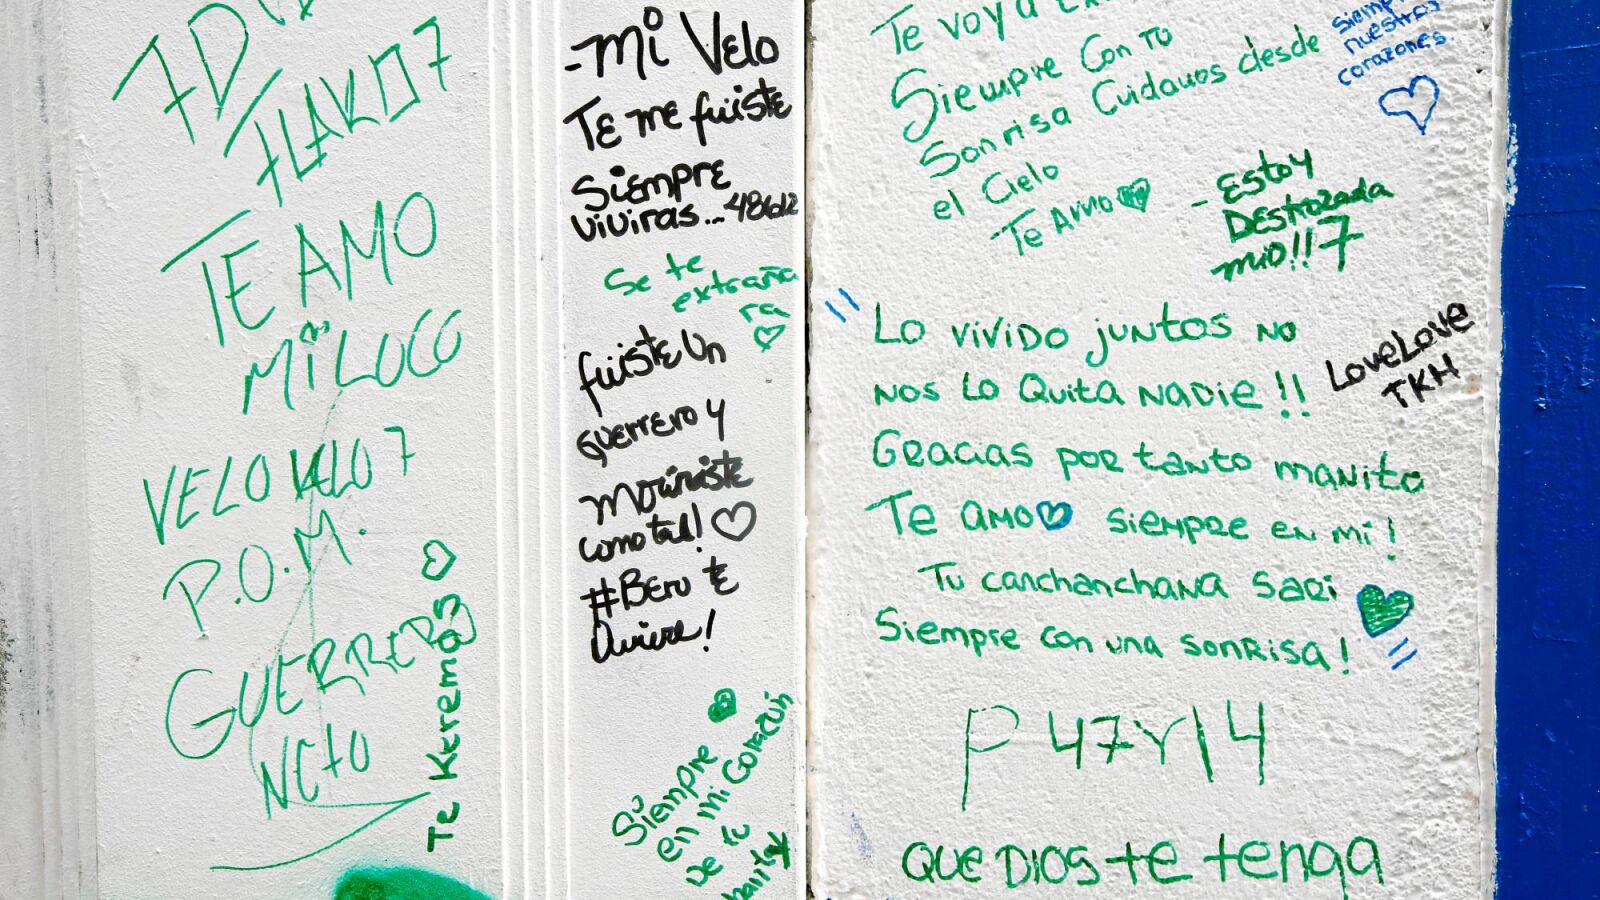 7D
FLAKO7
TE AMO
Mi LOCO
VELO VELO 7
P.O.M.
GUERRERO
NCTO
Te Keremos
-mi Velo
Te me fuiste
Siempre
viviras...
Se te
extraña
ra
fuiste un
guerrero y
como tal!
#Beru te
Quiere!
Siempre
en mi Corazon
De tu
Te voy a
Siempre Con Tu
Sonrisa Cuidanos desde
el Cielo
Te Amo
siempre
nuestros
corazones.
- Estoy
Destrozada
mio!! 7
" Lo vivido juntos no
nos lo Quita Nadie!!
LoveLove
TKH
Gracias por tanto manito
Te amo siempre en mi!
Tu canchanchana sari
Siempre con una sonrisa! "
P 47 Y 14
QUE DIOS te tenga